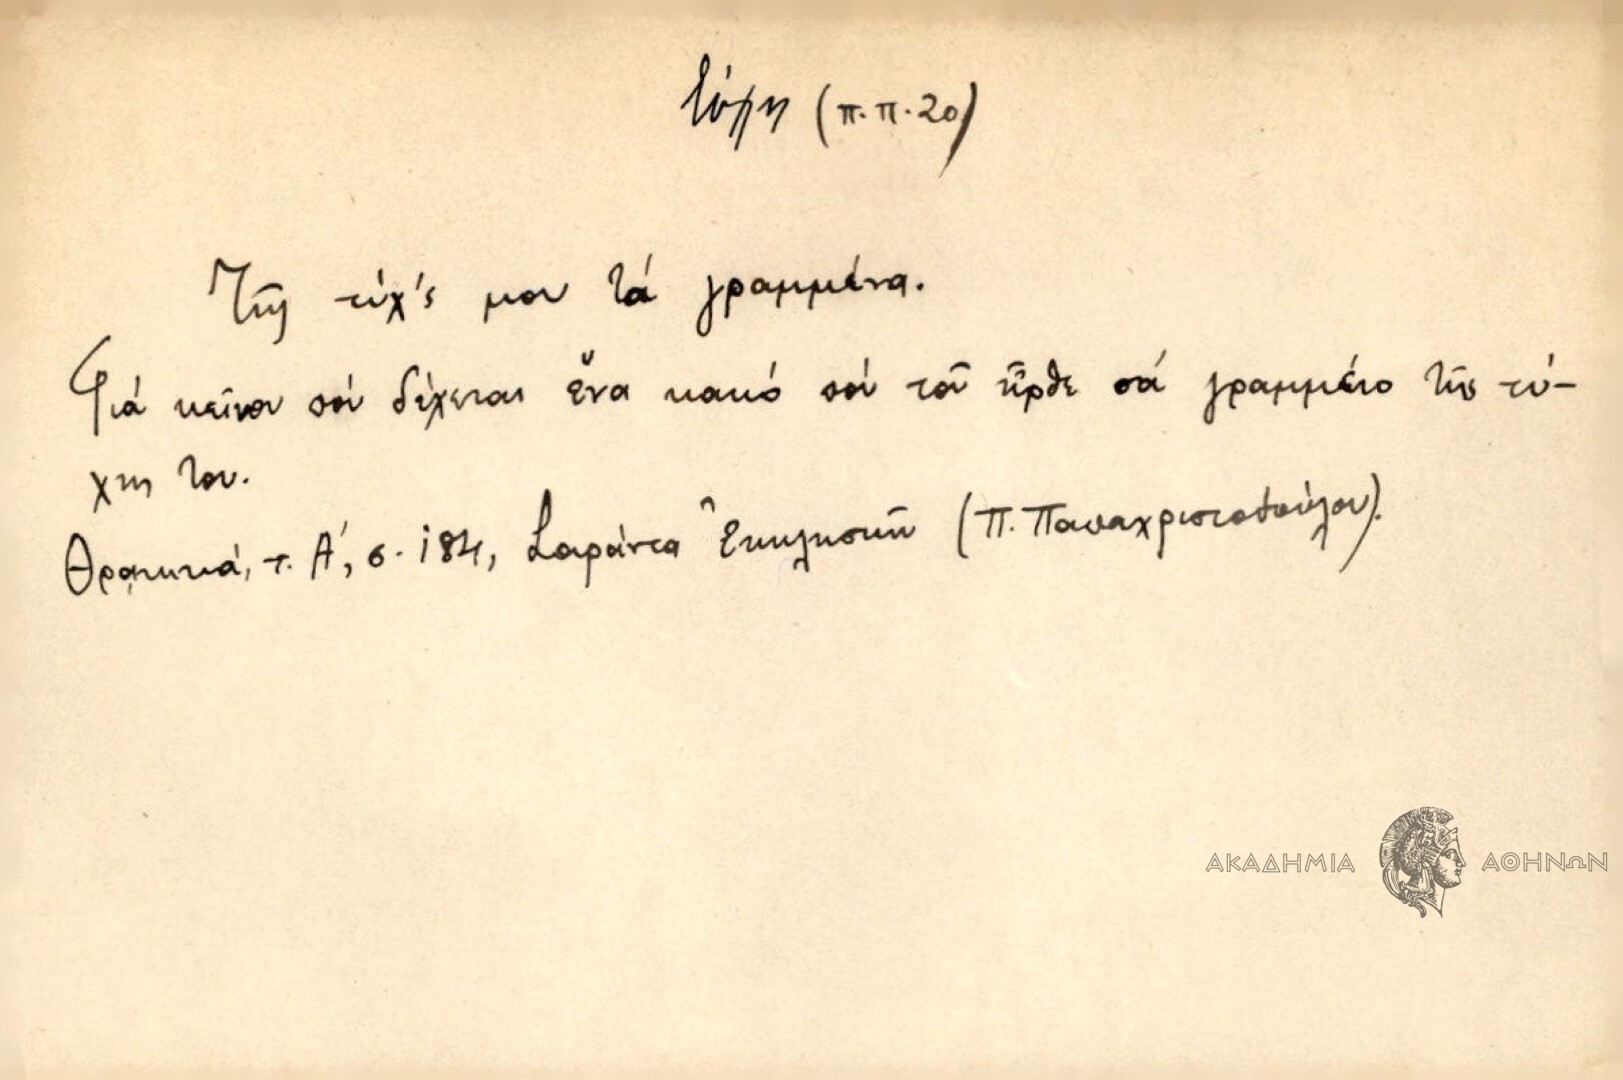 τύχη (π.π.20)
Τῆς τύχ'ς μου τά γραμμένα.
Γιά κεῖνον πού δέχεται ἕνα κακό πού τοῦ ἦρθε σά γραμμένο τῆς τύ-
χης του.
Θρακικά, τ. Α', σ. 184, Σαράντα Ἐκκλησιῶν (Π. Παπαχριστοδούλου).
ΑΚΑΔΗΜΙΑ ΑΘΗΝΩΝ